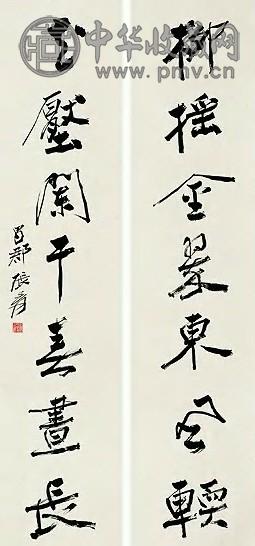 中华收藏网
www.pmv.cn
柳搖金翠東風輭
花壓闌干春晝長
蜀郡張爰